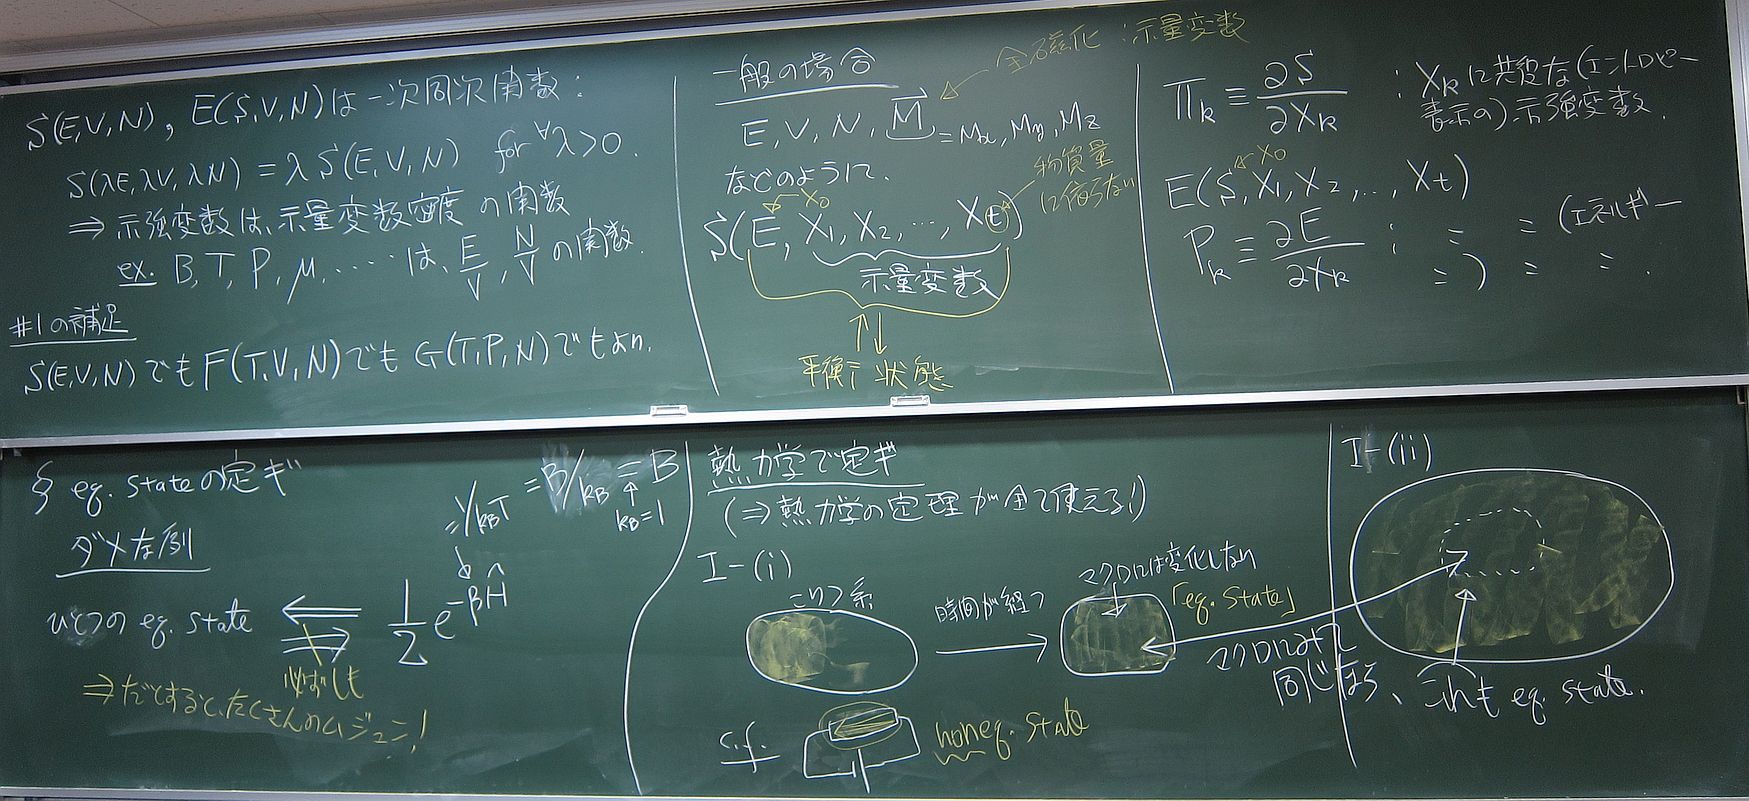 S(E,V,N), E(S,V,N)は一次同次関数:
S(λE,λV,λN) = λS(E,V,N) for ∀λ>0.
⇒ 示強変数は、示量変数密度の関数
ex. B,T,P,μ,.....は、E/V, N/Vの関数.
#1の補足
S(E,V,N)でもF(T,V,N)でもG(T,P,N)でもよい.
一般の場合
全磁化:示量変数
E, V, N, M⃗ = Mx, My, Mz
などのように.
物質量に依らない
X0
S(E, X1, X2, ..., Xt)
示量変数
平衡状態
Πk ≡ ∂S/∂Xk : Xkに共役な(エントロピー
表示の)示強変数.
X0
E(S, X1, X2, ..., Xt)
Pk ≡ ∂E/∂Xk : 〃 〃 (エネルギー
〃) 〃 〃.
§ eq. stateの定ギ
ダメな例
=1/kBT = B/kB ≡ B
kB=1
ひとつの eq. state ⇐ ⇒ 1/Z e^-βĤ
必ずしも
⇒だとすると、たくさんのムジュン!
熱力学で定ギ
(⇒熱力学の定理が全て使える!)
I-(i)
こりつ系
時間が経つ
マクロには変化しない
「eq. state」
c.f.
noneq. state
I-(ii)
マクロにみて
同じなら、これも eq. state.